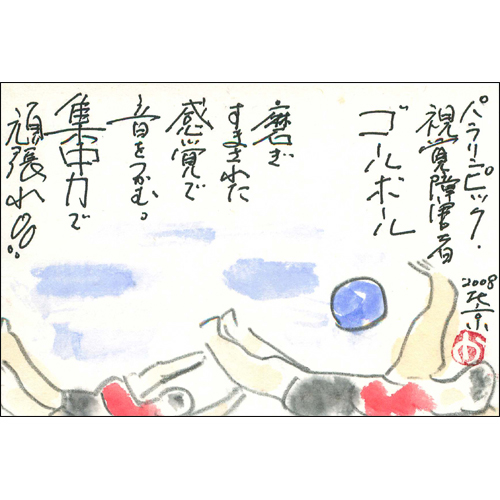 パラリンピック・
視覚障害者
ゴールボール
磨ぎ
すまされた
感覚で
音をつかむ。
集中力で
頑張れ!!
2008
北京